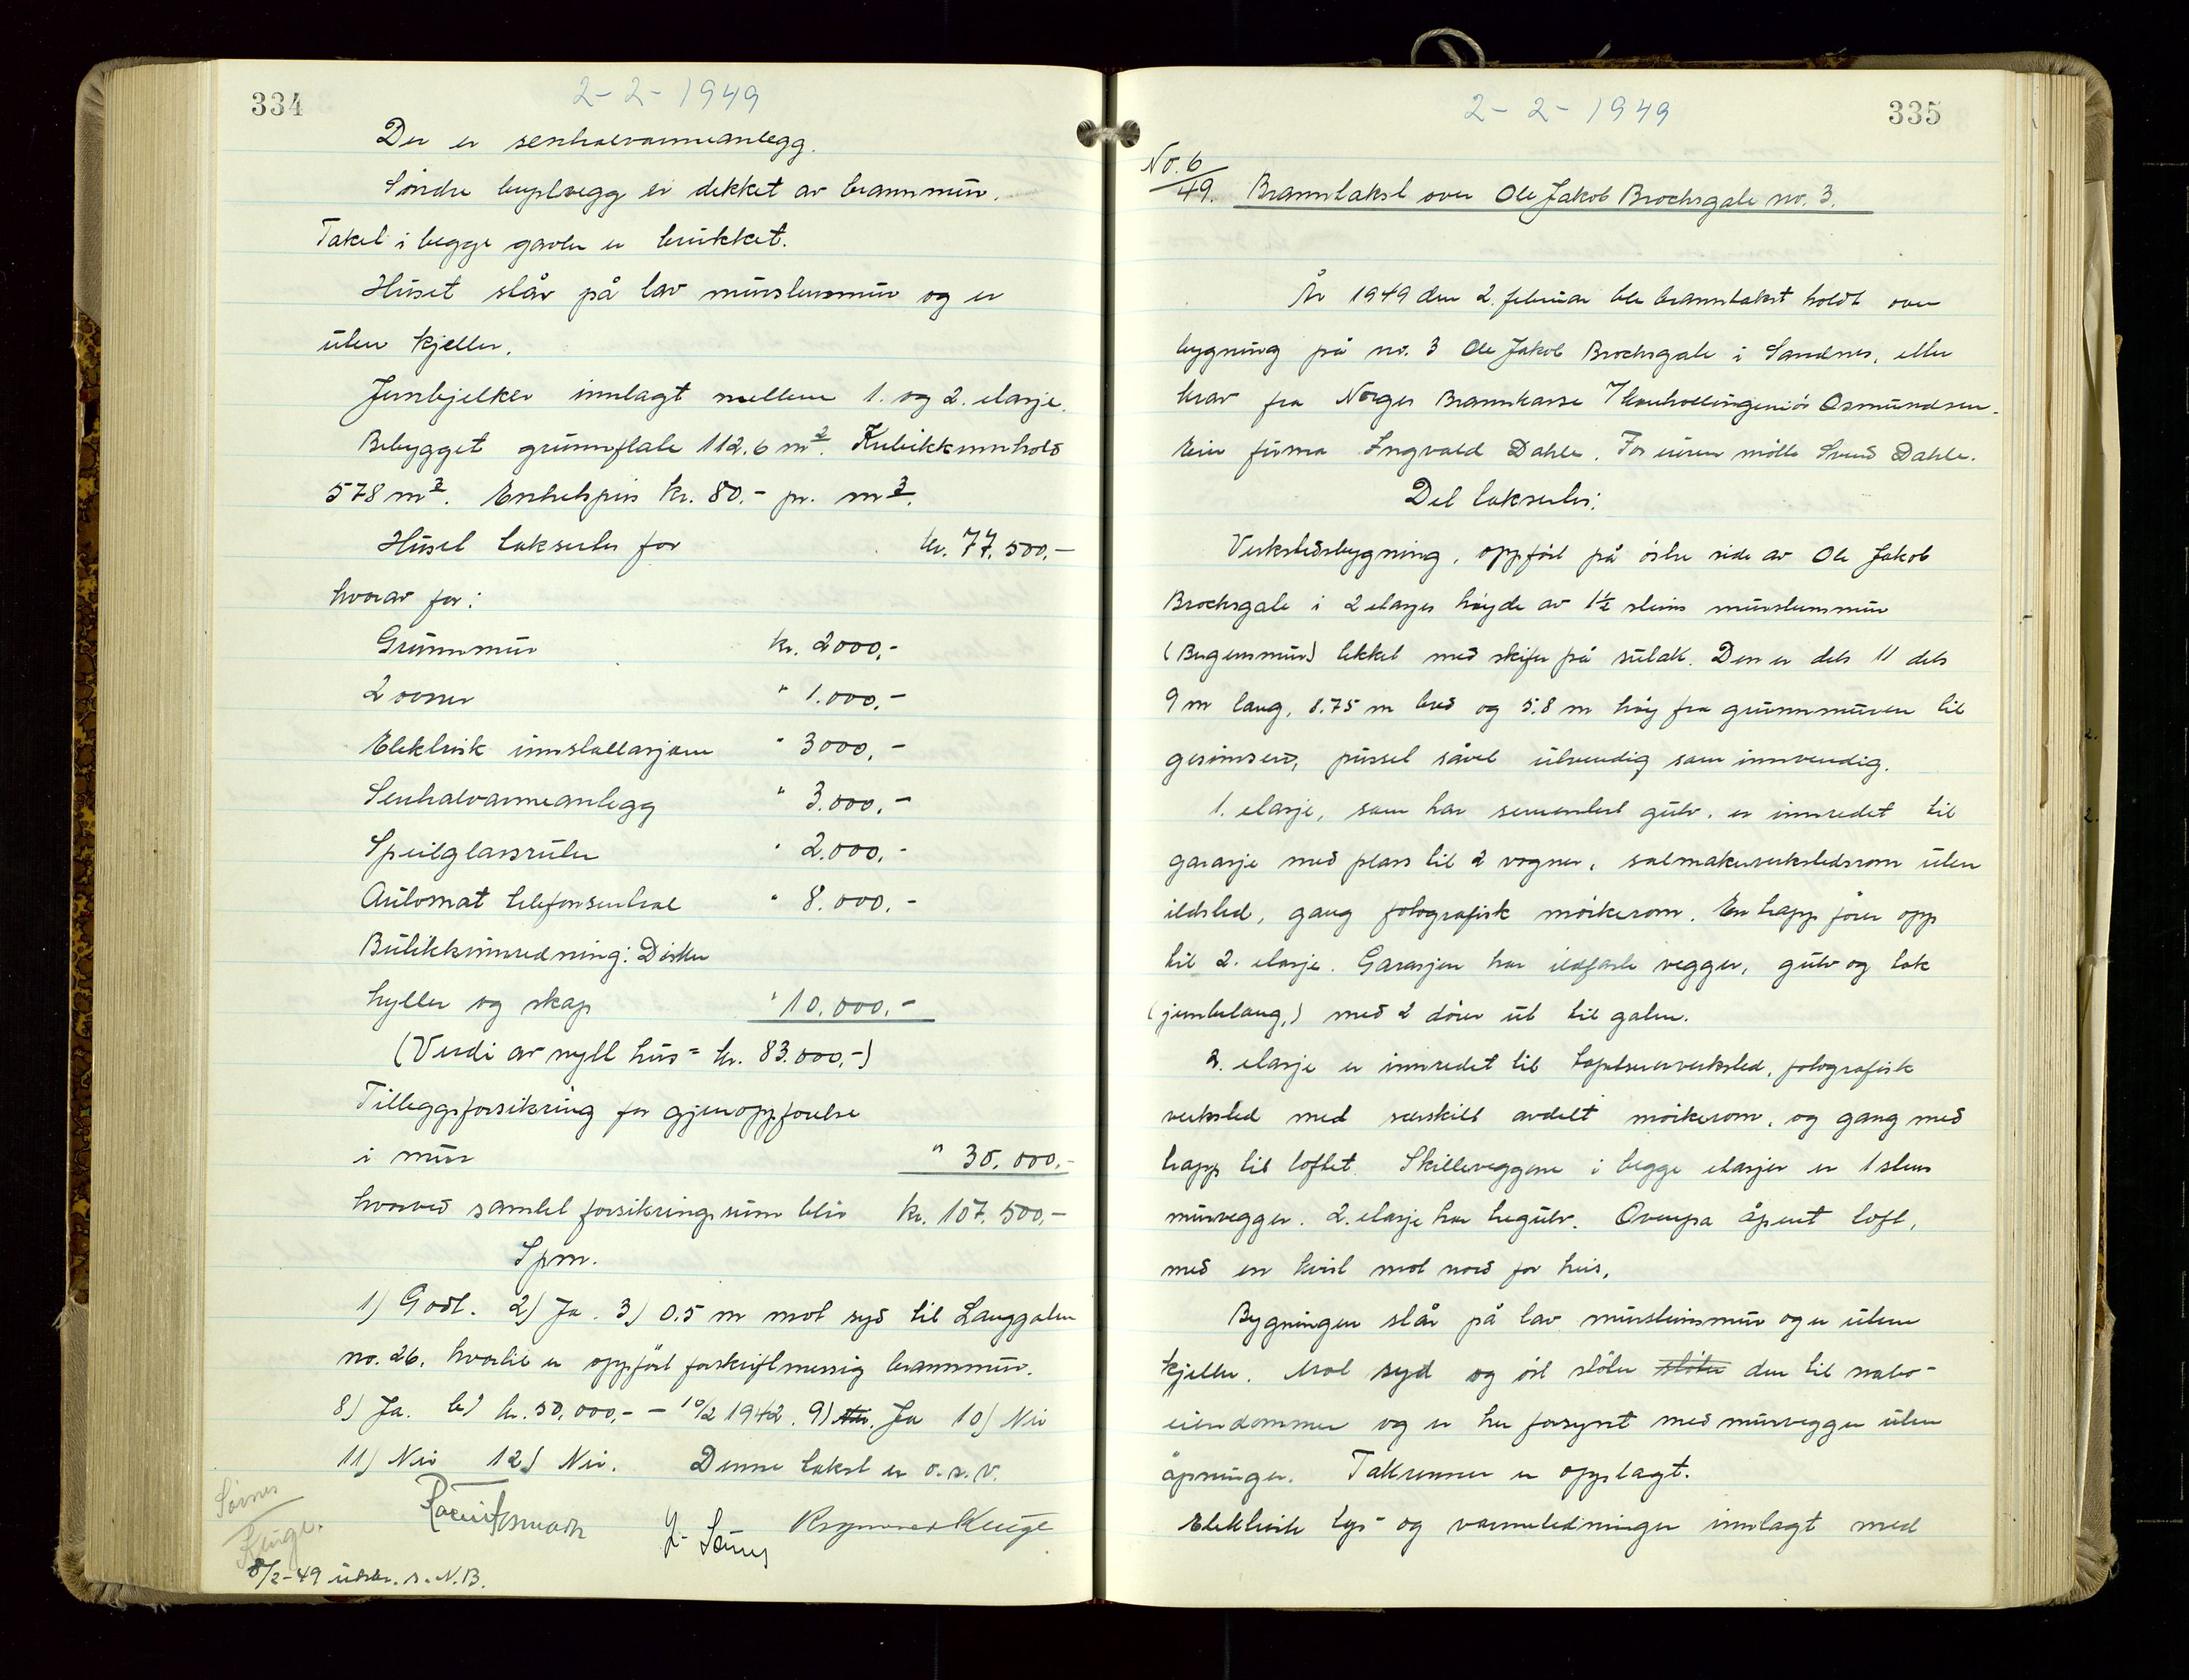 334
2-2-1949
Der er sentralvarmeanlegg.
Søndre burstvegg er dekket av brannmur.
Taket i begge gavler er brukket.
Huset står på lav murstensmur og er
uten kjeller.
Jernbjelker innlagt mellem 1. og 2. etasje.
Bebygget grunnflate 112.6 m2. Kubikkinnhold
578 m3. Enhetspris kr. 80.- pr. m3.
Huset takseres for kr. 77.500,-
hvorav for:
Grunnmur kr. 2000,-
2 ovner " 1.000,-
Elektrisk innstallasjon " 3000,-
Sentralvarmeanlegg " 3.000,-
Speilglassruter " 2.000,-
Automat telefonsentral " 8.000,-
Butikkinnredning: Disker
hyller og skap " 10.000,-
(Verdi av nytt hus = kr. 83.000,-)
Tilleggsforsikring for gjenoppførelse
i mur " 30.000,-
hvorved samlet forsikringssum blir kr. 107.500,-
Spm.
1) Godt. 2) Ja. 3) 0.5 m mot syd til Langgaten
no. 26, hvortil er oppført forskriftmessig brannmur.
8) Ja. b) kr. 50.000,- - 10/2 1942. 9) Nei. Ja 10) Nei
11) Nei 12) Nei. Denne takst er o.s.v.
Sørnes
Kluge.
Ragnvald Kluge
8/2-49 utskr. s. N.B.
335
2-2-1949
No. 6/49. Branntakst over Ole Jakob Brochsgate no. 3.
År 1949 den 2. februar ble branntakst holdt over
bygning på no. 3 Ole Jakob Brochsgate i Sandnes, etter
krav fra Norges Brannkasse v/kontrollingeniør Osmundsen.
Eier firma Ingvald Dahle. For eieren møtte Svend Dahle.
Det takseres:
Verkstedsbygning, oppført på østre side av Ole Jakob
Brochsgate i 2 etasjes høyde av 1½ steins murstensmur
(Bergensmur) tekket med skifer på sutak. Den er dels 11 dels
9 m lang, 8.75 m bred og 5.8 m høy fra grunnmuren til
gesimsen, pusset såvel utvendig som innvendig.
1. etasje, som har sementert gulv, er innredet til
garasje med plass til 2 vogner, salmakerverkstedsrom uten
ildsted, gang fotografisk mørkerom. En trapp fører opp
til 2. etasje. Garasjen har ildfaste vegger, gulv og tak
(jernbetong,) med 2 dører ut til gaten.
2. etasje er innredet til tapetserverksted, fotografisk
verksted med særskilt avdelt mørkerom, og gang med
trapp til loftet. Skilleveggene i begge etasjer er 1 stens
murvegger. 2. etasje har tregulv. Overpå åpent loft,
med en kvist mot nord for heis.
Bygningen står på lav mursteinsmur og er uten
kjeller. Mot syd og øst støter støter den til nabo-
eiendommer og er her forsynt med murvegger uten
åpninger. Takrenner er opplagt.
Elektrisk lys- og varmeledninger innlagt med